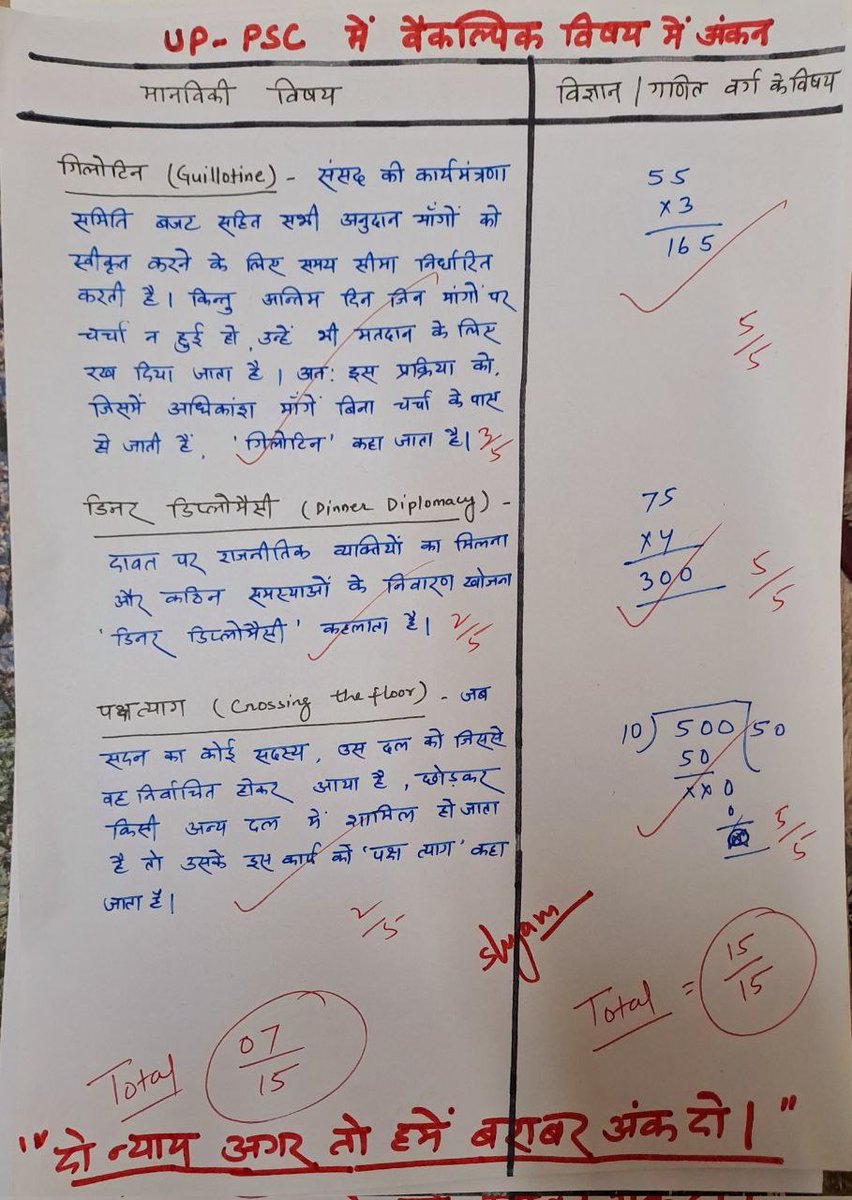 UP-PSC में वैकल्पिक विषय में अंकन
मानविकी विषय
गिलोटिन (Guillotine) - संसद की कार्यमंत्रणा
समिति बजट सहित सभी अनुदान माँगों को
स्वीकृत करने के लिए समय सीमा निर्धारित
करती है। किन्तु अन्तिम दिन जिन मांगों पर
चर्चा न हुई हो, उन्हें भी मतदान के लिए
रख दिया जाता है। अतः इस प्रक्रिया को,
जिसमें अधिकांश माँगें बिना चर्चा के पास
हो जाती हैं, 'गिलोटिन' कहा जाता है। 3/5
डिनर डिप्लोमैसी (Dinner Diplomacy) -
दावत पर राजनीतिक व्यक्तियों का मिलना
और कठिन समस्याओं के निवारण खोजना
'डिनर डिप्लोमैसी' कहलाता है। 2/5
पक्षत्याग (Crossing the floor) - जब
सदन का कोई सदस्य, उस दल को जिससे
वह निर्वाचित होकर आया है, छोड़कर
किसी अन्य दल में शामिल हो जाता
है तो उसके इस कार्य को 'पक्ष त्याग' कहा
जाता है।
2/5
Total 07/15
विज्ञान / गणित वर्ग के विषय
55
x3
165
5/5
75
x4
300
5/5
10) 500 (50
50
xx0
0
5/5
Shyam
Total = 15/15
"दो न्याय अगर तो हमें बराबर अंक दो।"